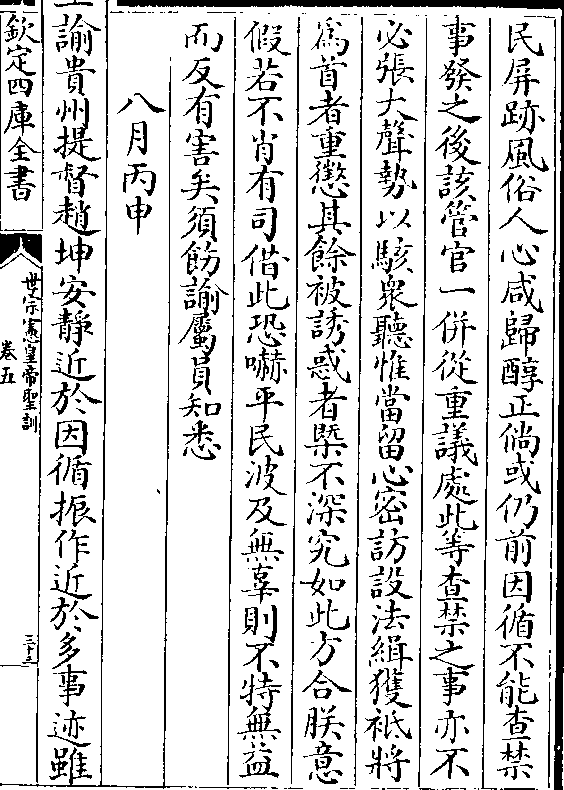 民屏跡風俗人心咸歸醇正倘或仍前因循不能查禁
事發之後該管官一併從重議處此等查禁之事亦不
必張大聲勢以駭衆聽惟當留心密訪設法緝獲祗將
爲首者重懲其餘被誘惑者槩不深究如此方合朕意
假若不肖有司借此恐嚇平民波及無辜則不特無益
而反有害矣須飭諭屬員知悉
八月丙申
上諭貴州提督趙坤安靜近於因循振作近於多事迹雖
欽定四庫全書
世宗憲皇帝聖訓
卷五
三十三